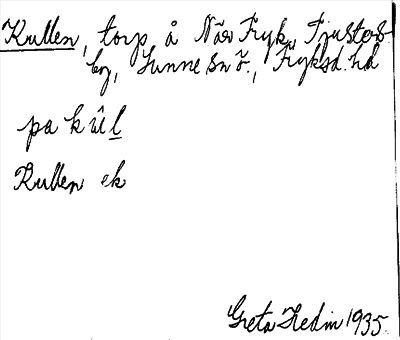 Kullen, torp å Näs Fryk, Frusters-
by, Sunne sn ö., Fryksd. hd
pa kûl
Kullen ek
Greta Hedin 1935.